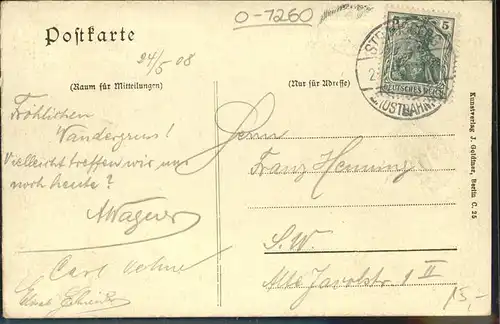 O-7260
Postkarte
24/5 08
5
DEUTSCHES REICH
(Raum für Mitteilungen)
(Nur für Adresse)
Fröhlichen
Wandergruss!
Vielleicht treffen wir uns
noch heute?
A Wagner
Carl
Herrn
Franz Henning
S.W.
Alte Jacobstr. 1 II
15,-
Kunstverlag J. Goldiner, Berlin C. 25